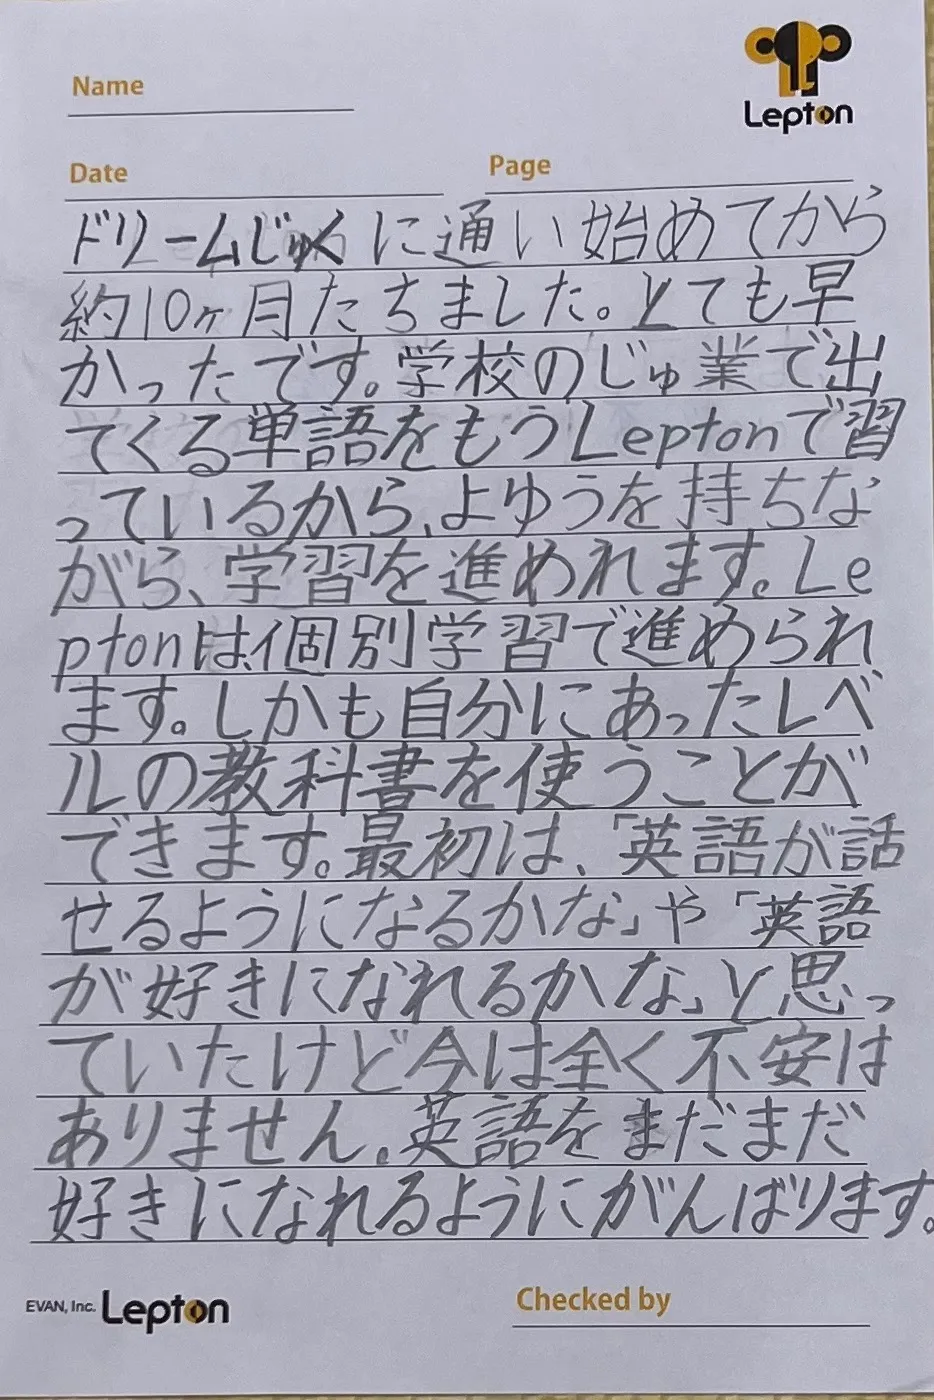 Name
Lepton
Date
Page
ドリームじゅくに通い始めてから
約10ヶ月たちました。とても早
かったです。学校のじゅ業で出
てくる単語をもうLeptonで習
っているから、よゆうを持ちな
がら、学習を進めれます。Le
ptonは、個別学習で進められ
ます。しかも自分にあったレベ
ルの教科書を使うことが
できます。最初は、「英語が話
せるようになるかな」や「英語
が好きになれるかな」と思っ
ていたけど今は全く不安は
ありません。英語をまだまだ
好きになれるようにがんばります。
EVAN, Inc. Lepton
Checked by